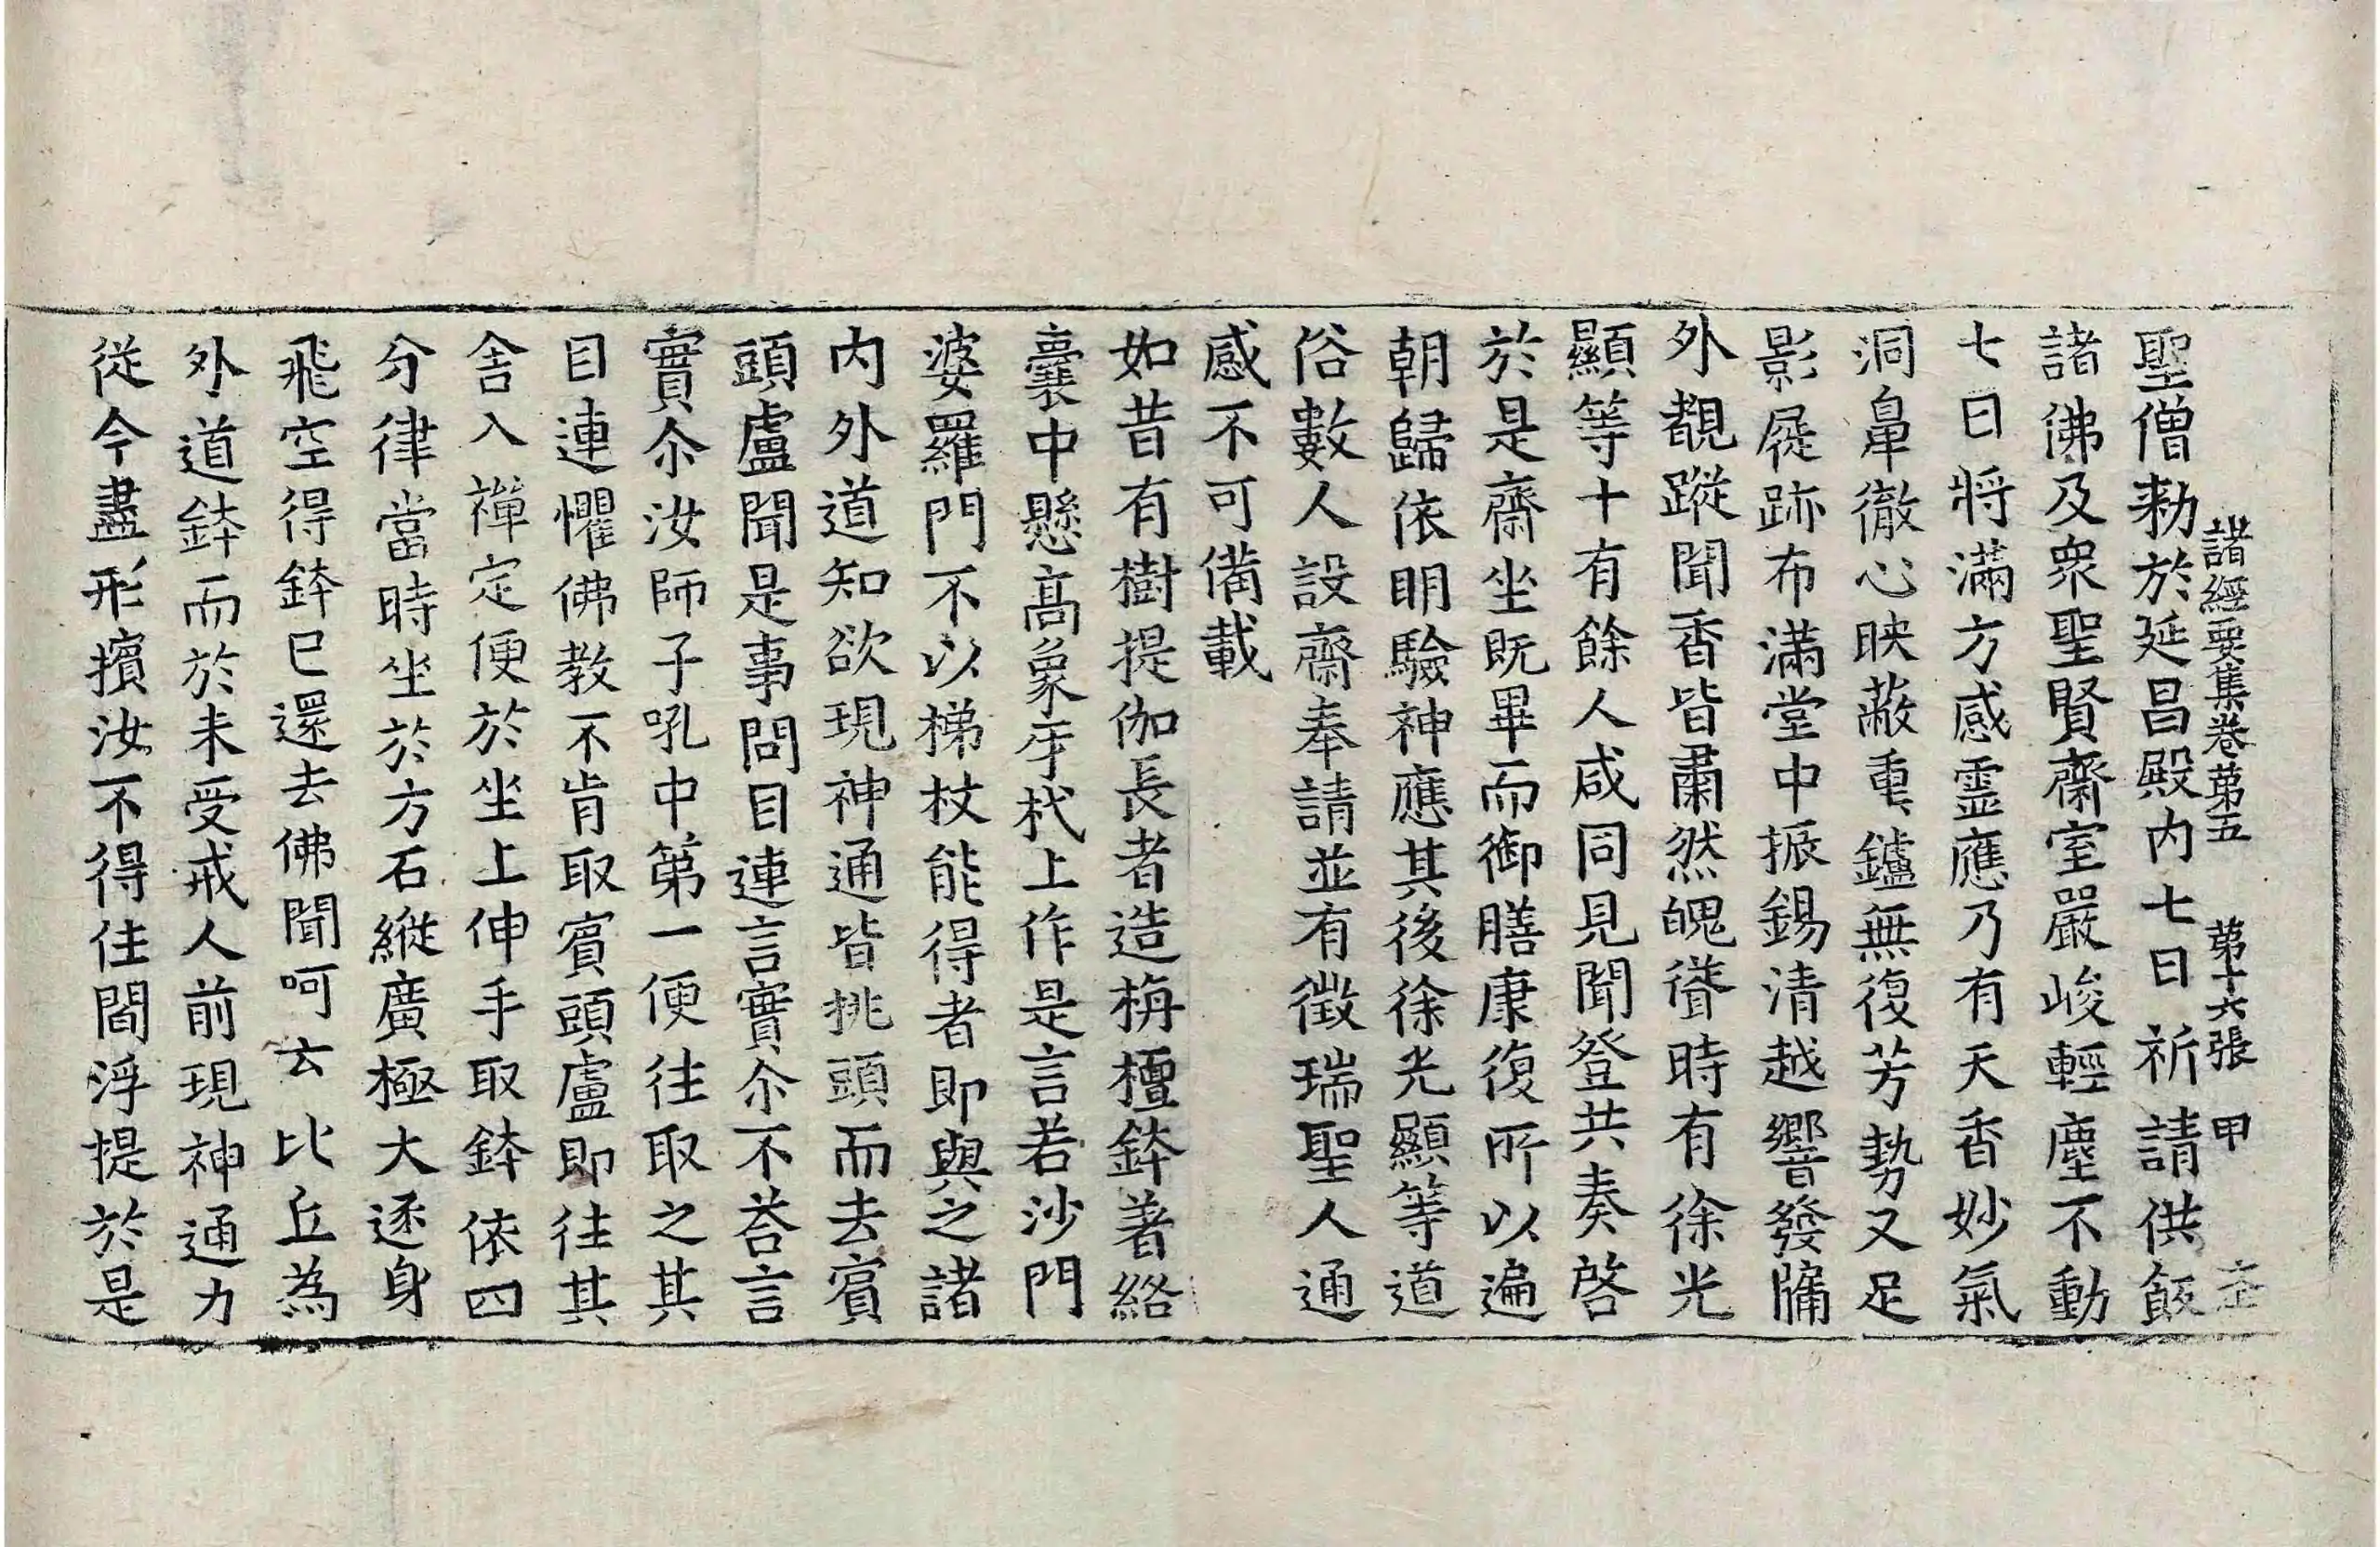 諸經要集卷第五 第十六張 甲
聖僧勑於延昌殿内七日祈請供飯
諸佛及衆聖賢齋室嚴峻輕塵不動
七日將滿方感霊應乃有天香妙氣
洞鼻徹心映蔽重鑪無復芳勢又足
影屣跡布滿堂中振錫清越響發牖
外覩蹤聞香皆肅然魄聳時有徐光
顯等十有餘人咸同見聞登共奏啓
於是齋坐既畢而御膳康復所以遍
朝歸依明驗神應其後徐光顯等道
俗數人設齋奉請並有徵瑞聖人通
感不可備載
如昔有樹提伽長者造栴檀鉢著絡
囊中懸髙象牙杙上作是言若沙門
婆羅門不以梯杖能得者即與之諸
内外道知欲現神通皆挑頭而去賔
頭盧聞是事問目連言實尒不荅言
實尒汝師子吼中第一便往取之其
目連懼佛教不肯取賔頭盧即往其
舍入禪定便於坐上伸手取鉢依四
分律當時坐於方石縱廣極大逐身
飛空得鉢已還去佛聞呵云比丘為
外道鉢而於未受戒人前現神通力
從今盡形擯汝不得住閻浮提於是